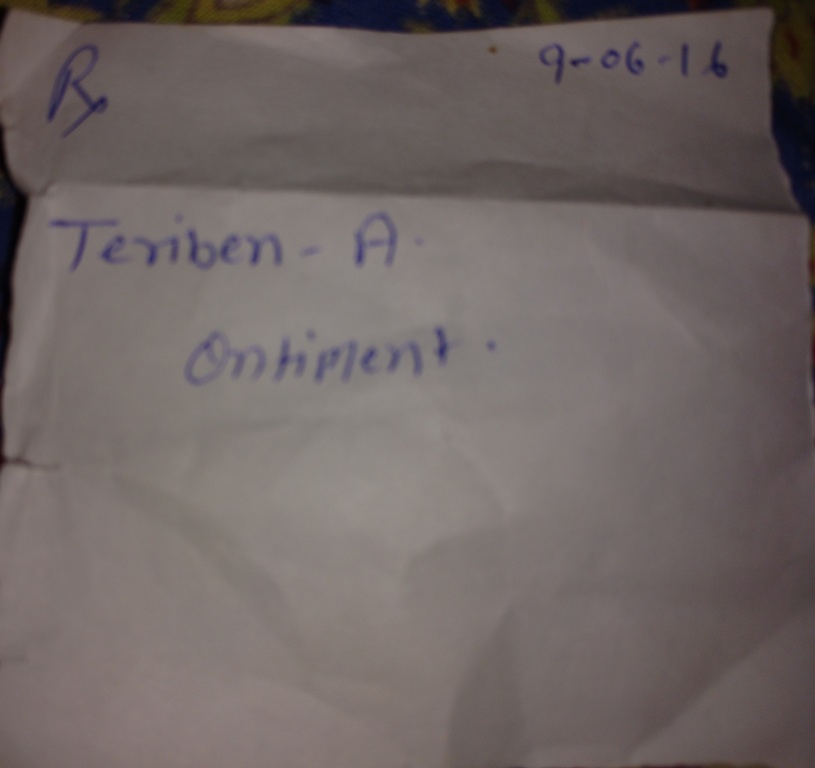 ℞ 9-06-16
Teriben - A.
Ontiment.